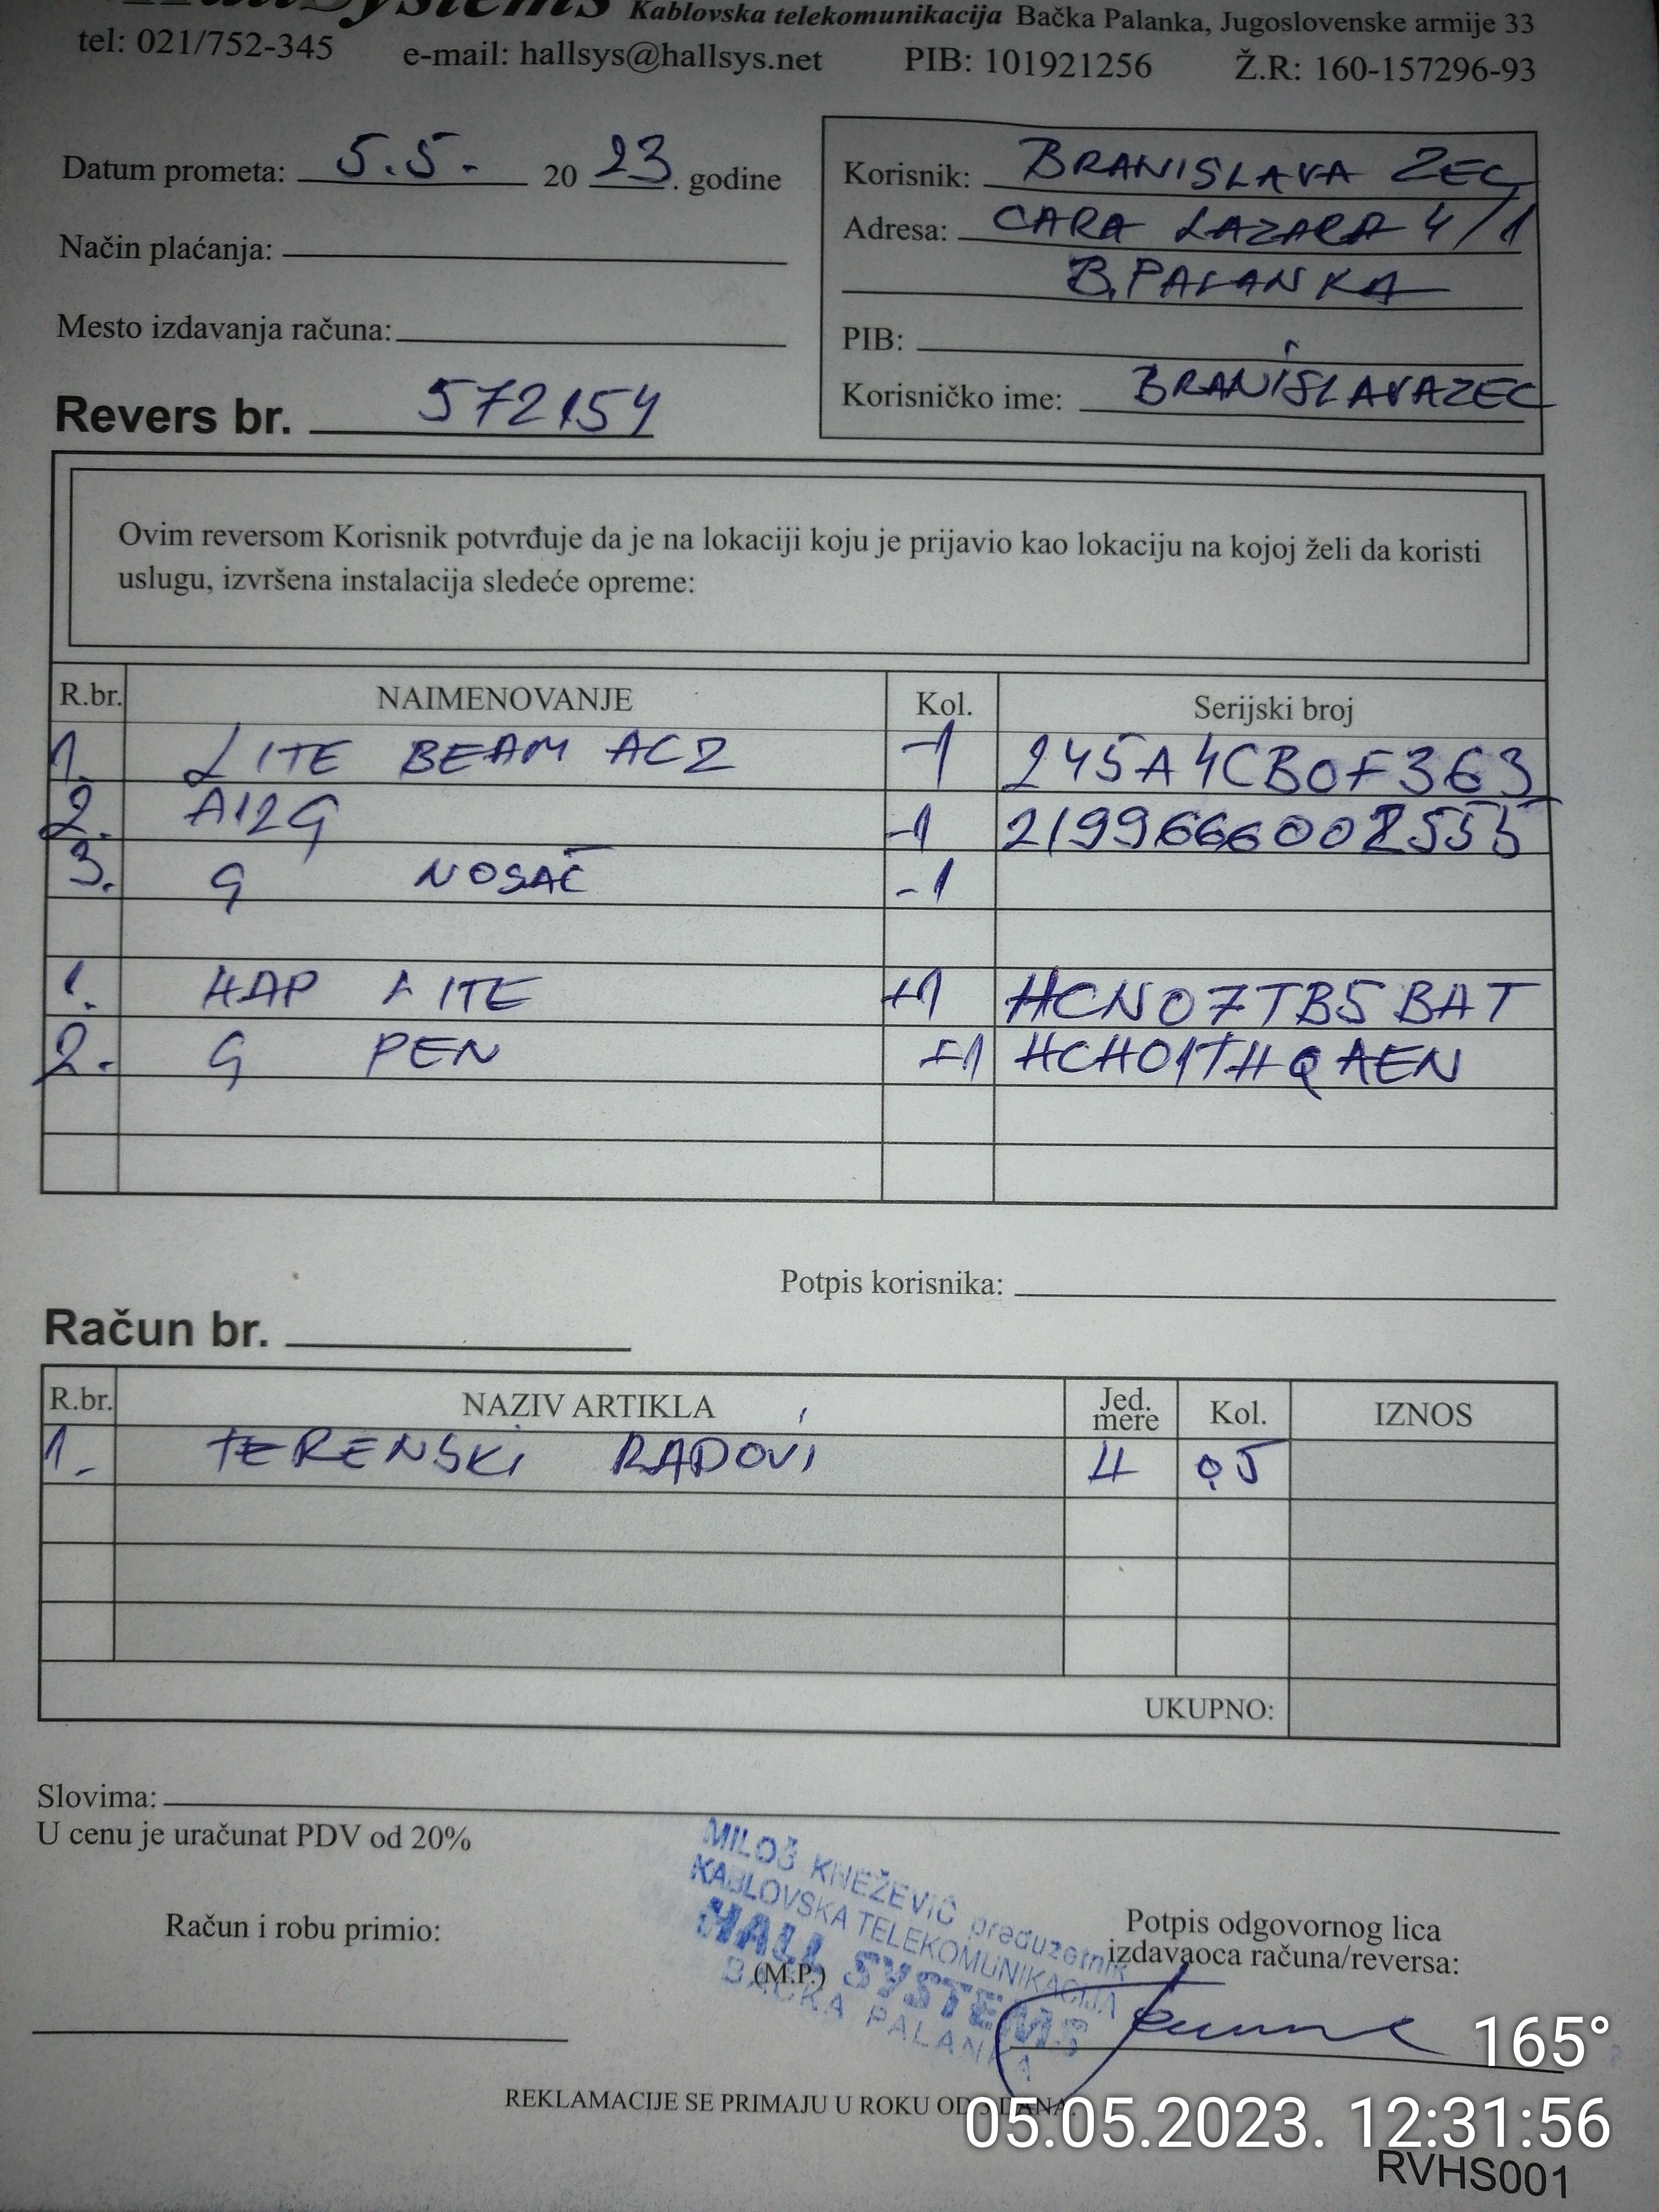 HallSystems Kablovska telekomunikacija Bačka Palanka, Jugoslovenske armije 33
tel: 021/752-345 e-mail: hallsys@hallsys.net PIB: 101921256 Ž.R: 160-157296-93
Datum prometa: 5.5. 2023. godine
Način plaćanja:
Mesto izdavanja računa:
Revers br. 572154
Korisnik: BRANISLAVA ZEC
Adresa: CARA LAZARA 4/1
B.PALANKA
PIB:
Korisničko ime: BRANISLAVAZEC
Ovim reversom Korisnik potvrđuje da je na lokaciji koju je prijavio kao lokaciju na kojoj želi da koristi
uslugu, izvršena instalacija sledeće opreme:
R.br. NAIMENOVANJE Kol. Serijski broj
1. LITE BEAM AC2 -1 245A4CB0F363
2. A12G -1 2199666002555
3. G NOSAČ -1
1. HAP LITE +1 HCN07TB5BAT
2. G PEN +1 HCH01THQAEN
Potpis korisnika:
Račun br.
R.br. NAZIV ARTIKLA Jed. mere Kol. IZNOS
1. TERENSKI RADOVI H 0,5
UKUPNO:
Slovima:
U cenu je uračunat PDV od 20%
Račun i robu primio:
MILOŠ KNEŽEVIĆ preduzetnik
KABLOVSKA TELEKOMUNIKACIJA
HALL SYSTEMS
BAČKA PALANKA
(M.P.)
Potpis odgovornog lica
izdavaoca računa/reversa:
REKLAMACIJE SE PRIMAJU U ROKU OD 3 DANA.
165°
05.05.2023. 12:31:56
RVHS001